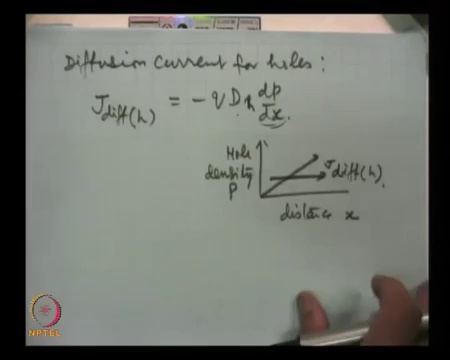 Diffusion current for holes:
J diff(h) = - q D h dp/dx
Hole
density
p
J diff(h)
distance x
NPTEL